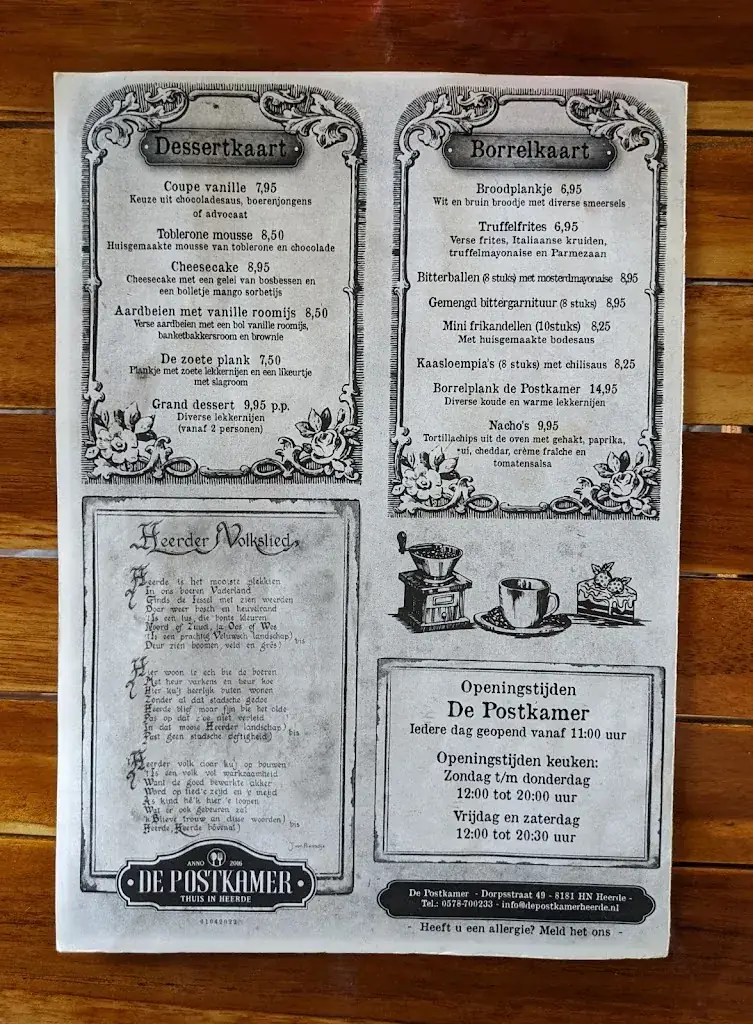 Dessertkaart
Coupe vanille 7,95
Keuze uit chocoladesaus, boerenjongens
of advocaat
Toblerone mousse 8,50
Huisgemaakte mousse van toblerone en chocolade
Cheesecake 8,95
Cheesecake met een gelei van bosbessen en
een bolletje mango sorbetijs
Aardbeien met vanille roomijs 8,50
Verse aardbeien met een bol vanille roomijs,
banketbakkersroom en brownie
De zoete plank 7,50
Plankje met zoete lekkernijen en een likeurtje
met slagroom
Grand dessert 9,95 p.p.
Diverse lekkernijen
(vanaf 2 personen)
Borrelkaart
Broodplankje 6,95
Wit en bruin broodje met diverse smeersels
Truffelfrites 6,95
Verse frites, Italiaanse kruiden,
truffelmayonaise en Parmezaan
Bitterballen (8 stuks) met mosterdmayonaise 8,95
Gemengd bittergarnituur (8 stuks) 8,95
Mini frikandellen (10stuks) 8,25
Met huisgemaakte bodesaus
Kaasloempia's (8 stuks) met chilisaus 8,25
Borrelplank de Postkamer 14,95
Diverse koude en warme lekkernijen
Nacho's 9,95
Tortillachips uit de oven met gehakt, paprika,
ui, cheddar, crème fraîche en
tomatensalsa
Heerder Volkslied
Heerde is het mooiste plekkien
In ons boeren Vaderland
Ginds de Iessel met zien weerden
Daor weer bosch en heuvelrand
't Is een lus, die bonte kleuren
Noord of Zuud, ja Oos of Wes
't Is een prachtig Veluwsch landschap) bis
Deur zien boomen, veld en grês)
Hier woon ie ech bie de boeren
Met heur varkens en heur koe
Hier ku'j heerlijk buten wonen
Zonder al dat stadsche gedoe
Heerde blief maor fijn bie het olde
Pas op dat
niet verleid
In dat mooie Heerder landschap) bis
Past geen stadsche deftigheid)
Heerder volk daor ku'j op bouwen
't Is een volk vol warkzaamheid
Want de goed bewarkte akker
Word op tied
zeijd en
meijd
As kind hè'k hier
loopen
Wat er ook gebeuren zal
'k Blieve trouw an disse woorden) bis
Heerde, Heerde bovenal)
ANNO 2016
DE POSTKAMER
THUIS IN HEERDE
Openingstijden
De Postkamer
Iedere dag geopend vanaf 11:00 uur
Openingstijden keuken:
Zondag t/m donderdag
12:00 tot 20:00 uur
Vrijdag en zaterdag
12:00 tot 20:30 uur
De Postkamer - Dorpsstraat 49 - 8181 HN Heerde -
Tel.: 0578-700233 - info@depostkamerheerde.nl
- Heeft u een allergie? Meld het ons -